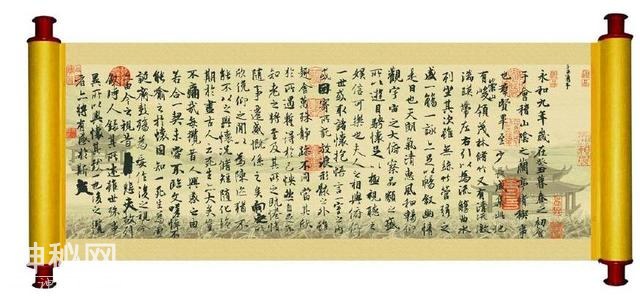 永和九年歲在癸丑暮春之初會
于會稽山陰之蘭亭脩稧事
也群賢畢至少長咸集此地
有崇山峻領茂林脩竹又有清流激
湍暎帶左右引以為流觴曲水
列坐其次雖無絲竹管弦之
盛一觴一詠亦足以暢敘幽情
是日也天朗氣清惠風和暢仰
觀宇宙之大俯察品類之盛
所以遊目騁懷足以極視聽之
娛信可樂也夫人之相與俯仰
一世或取諸懷抱悟言一室之內
或因寄所託放浪形骸之外雖
趣舍萬殊靜躁不同當其欣
於所遇暫得於己怏然自足不
知老之將至及其所之既惓情
隨事遷感慨係之矣向之所
欣俛仰之間以為陳跡猶不
能不以之興懷況脩短隨化終
期於盡古人云死生亦大矣豈
不痛哉每攬昔人興感之由
若合一契未嘗不臨文嗟悼不
能喻之於懷固知一死生為虛
誕齊彭殤為妄作後之視今
亦由今之視昔悲夫故列
敘時人錄其所述雖世殊事
異所以興懷其致一也後之攬
者亦將有感於斯文
神秘网